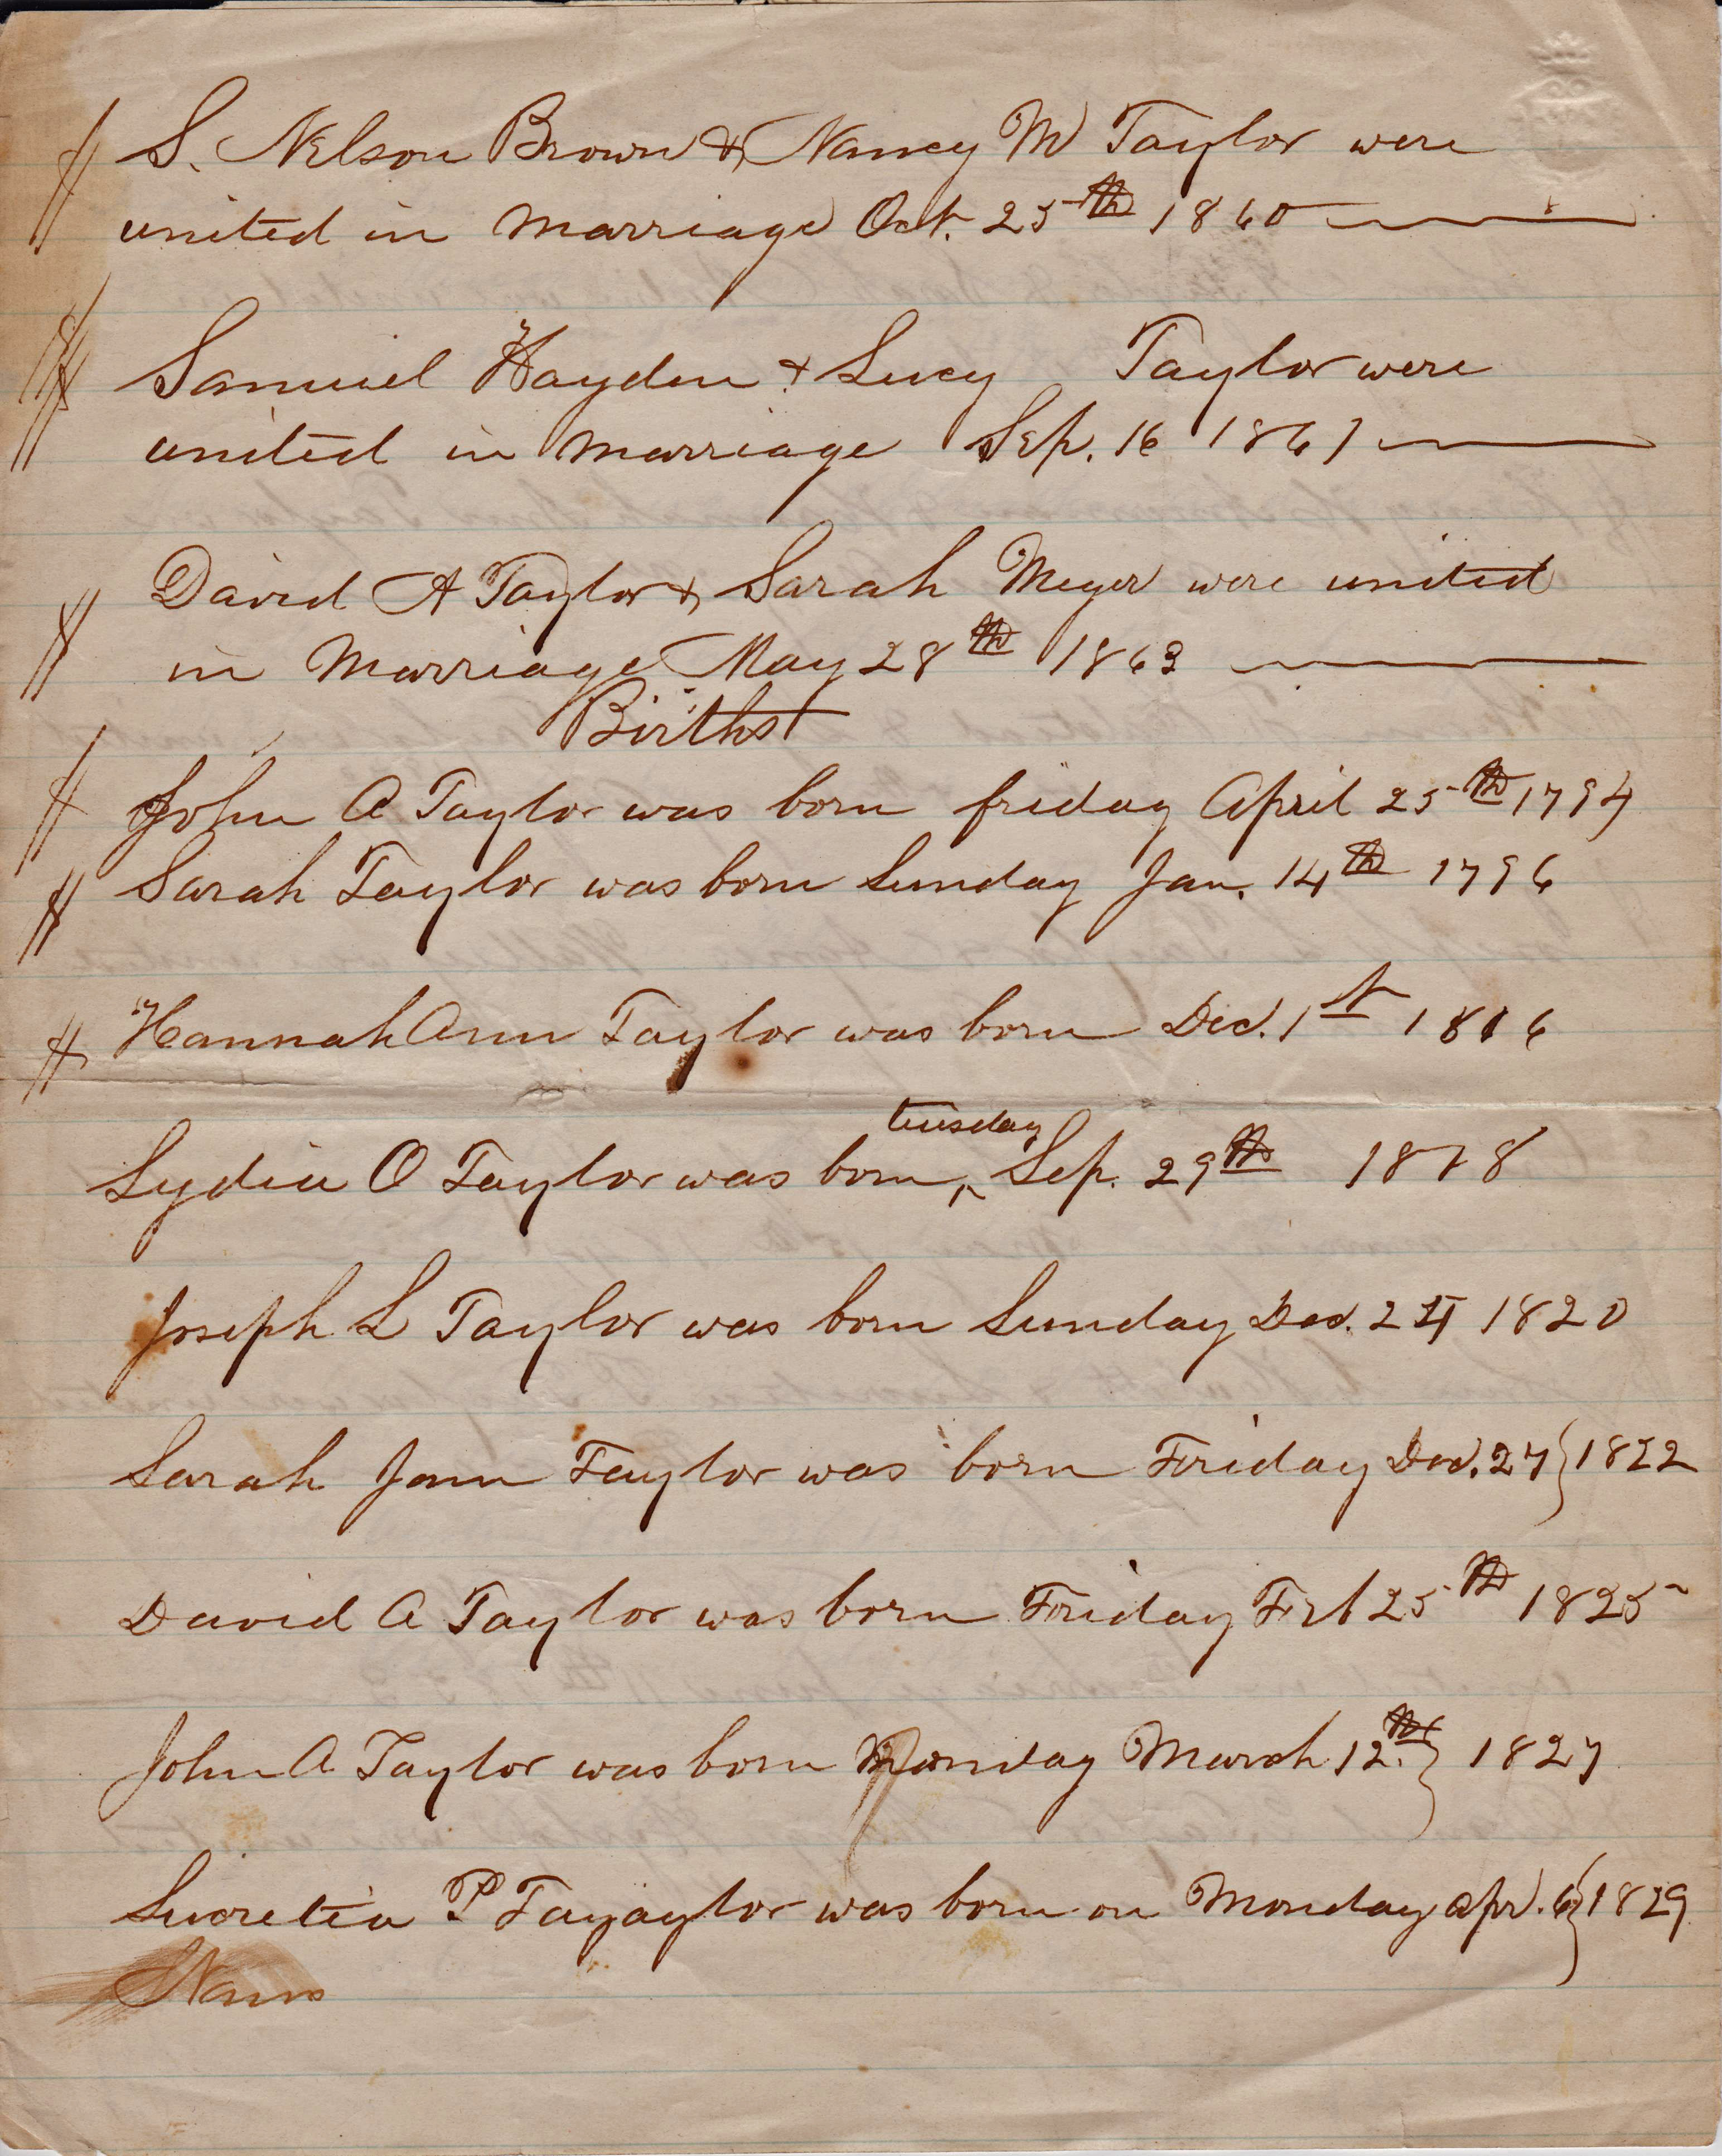 S. Nelson Brown & Nancy M Taylor were
united in marriage Oct. 25th 1860
Samuel Hayden & Lucy Taylor were
united in marriage Sep. 16 1861
David A Taylor & Sarah Meyer were united
in Marriage May 28th 1863
Births
John A Taylor was born friday April 25th 1794
Sarah Taylor was born Sunday Jan. 14th 1796
Hannah Ann Taylor was born Dec. 1st 1816
tuesday
Lydia O Taylor was born, Sep. 29th 1818
Joseph L Taylor was born Sunday Dec. 24 1820
Sarah Jann Taylor was born Friday Dec. 27 } 1822
David A Taylor was born Friday Feb 25th 1825
John A Taylor was born Monday March 12th } 1827
Lucretia P Tayaylor was born on Monday Apr. 6 } 1829